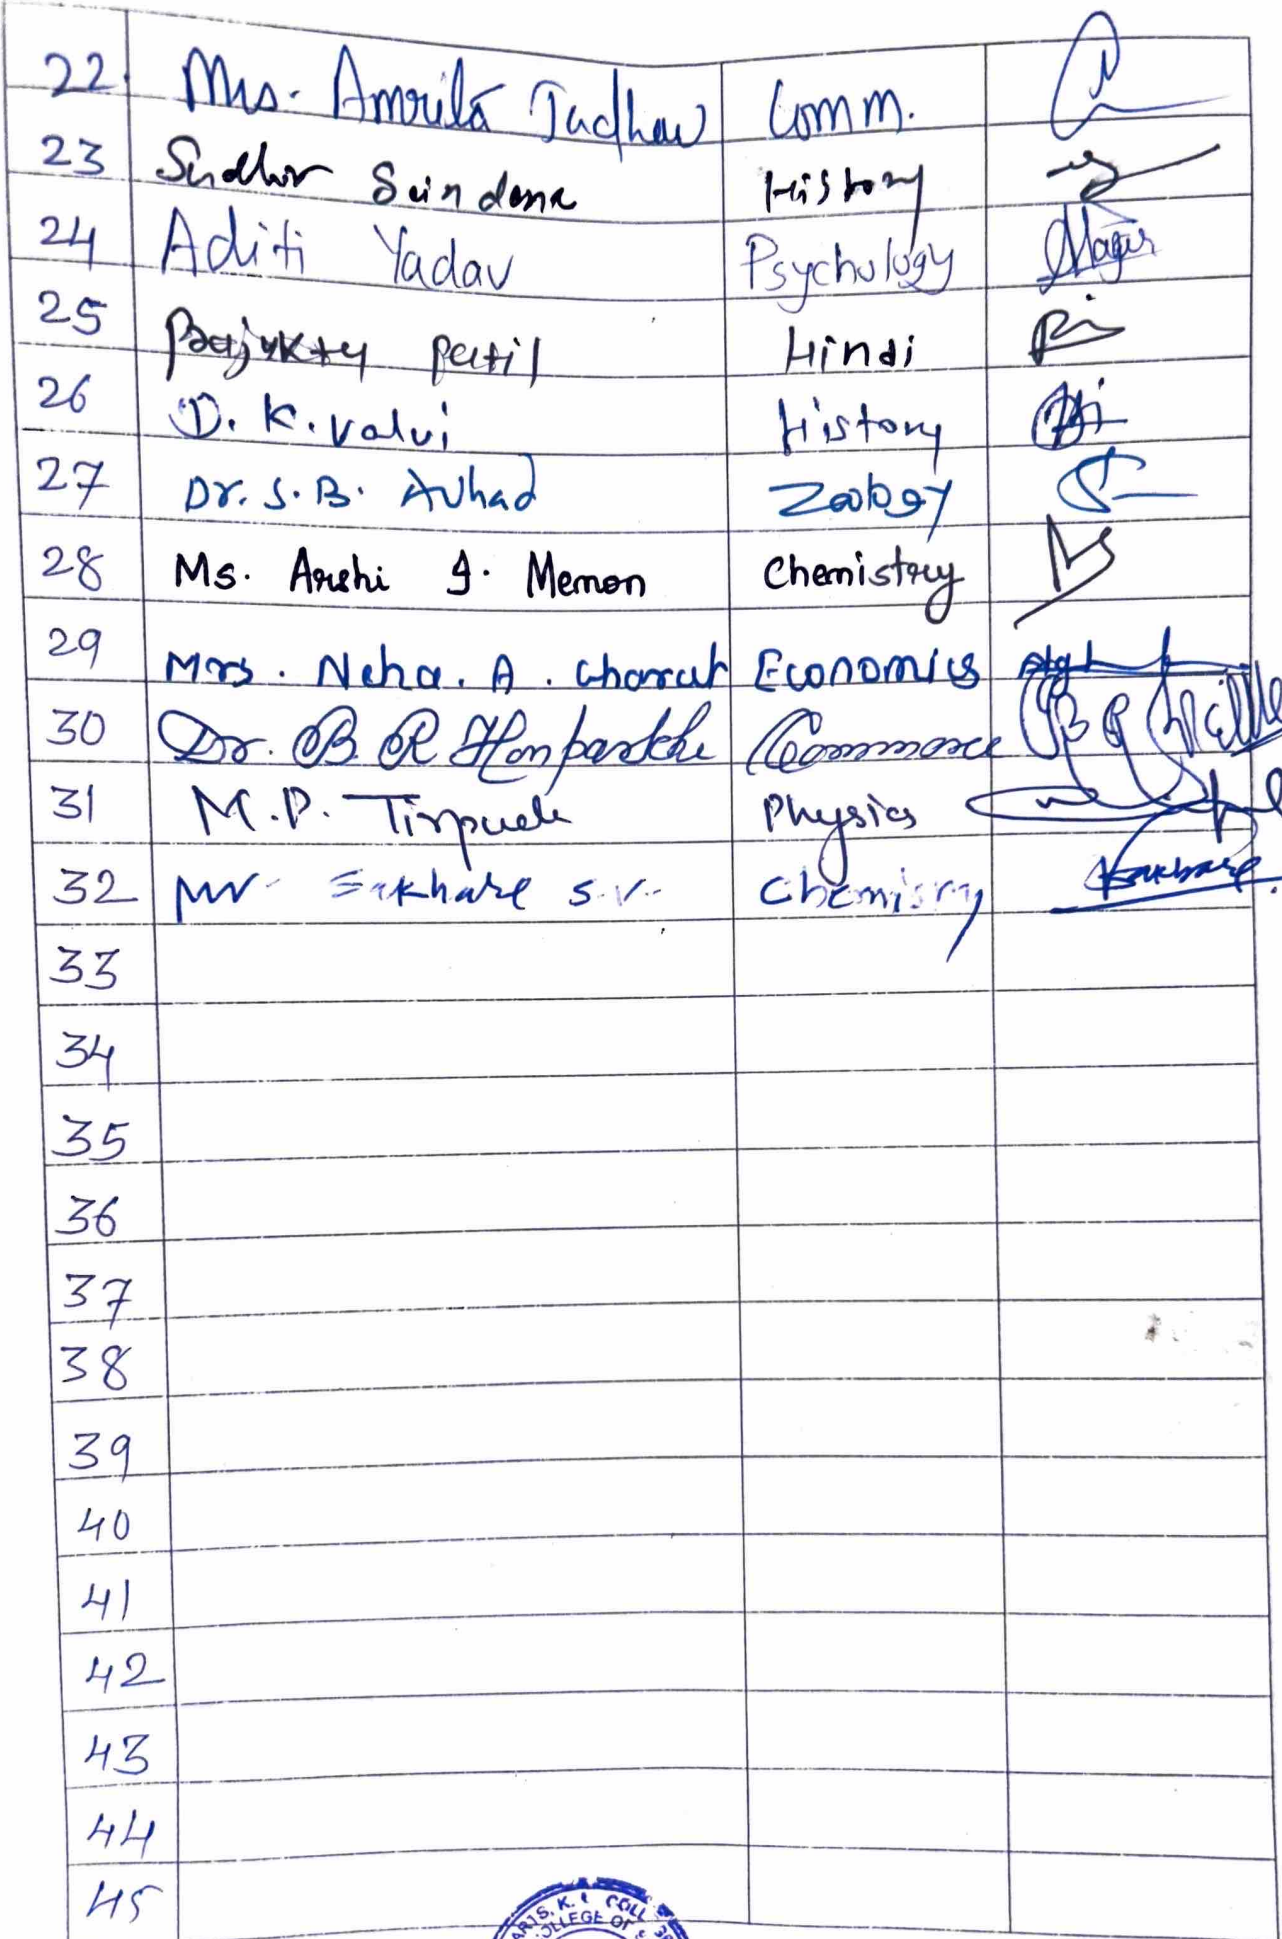 22. Mrs. Amrita Jadhav Comm.
23 Sudhir Comm. History
24 Aditi Yadav Psychology
25 Prajukty Patil Hindi
26 D. K. Valvi History
27 Dr. S. B. Avhad Zoology
28 Ms. Arshi I. Memon Chemistry
29 Mrs. Neha. A. Gharat Economics
30 Dr. B. R Commerce
31 M. P. Tirpude Physics
32 Mr Sakhare S.V. Chemisry Sakhare
33
34
35
36
37
38
39
40
41
42
43
44
45